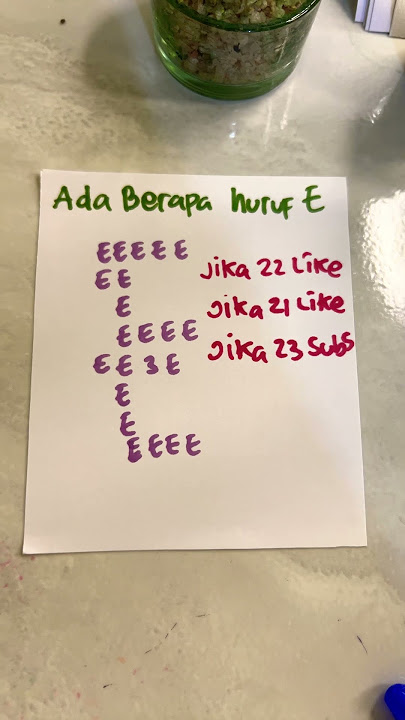 Ada Berapa huruf E
E E E E E
E E
E
E E E E
E E 3 E
E
E
E E E E
Jika 22 Like
Jika 21 Like
Jika 23 Subs